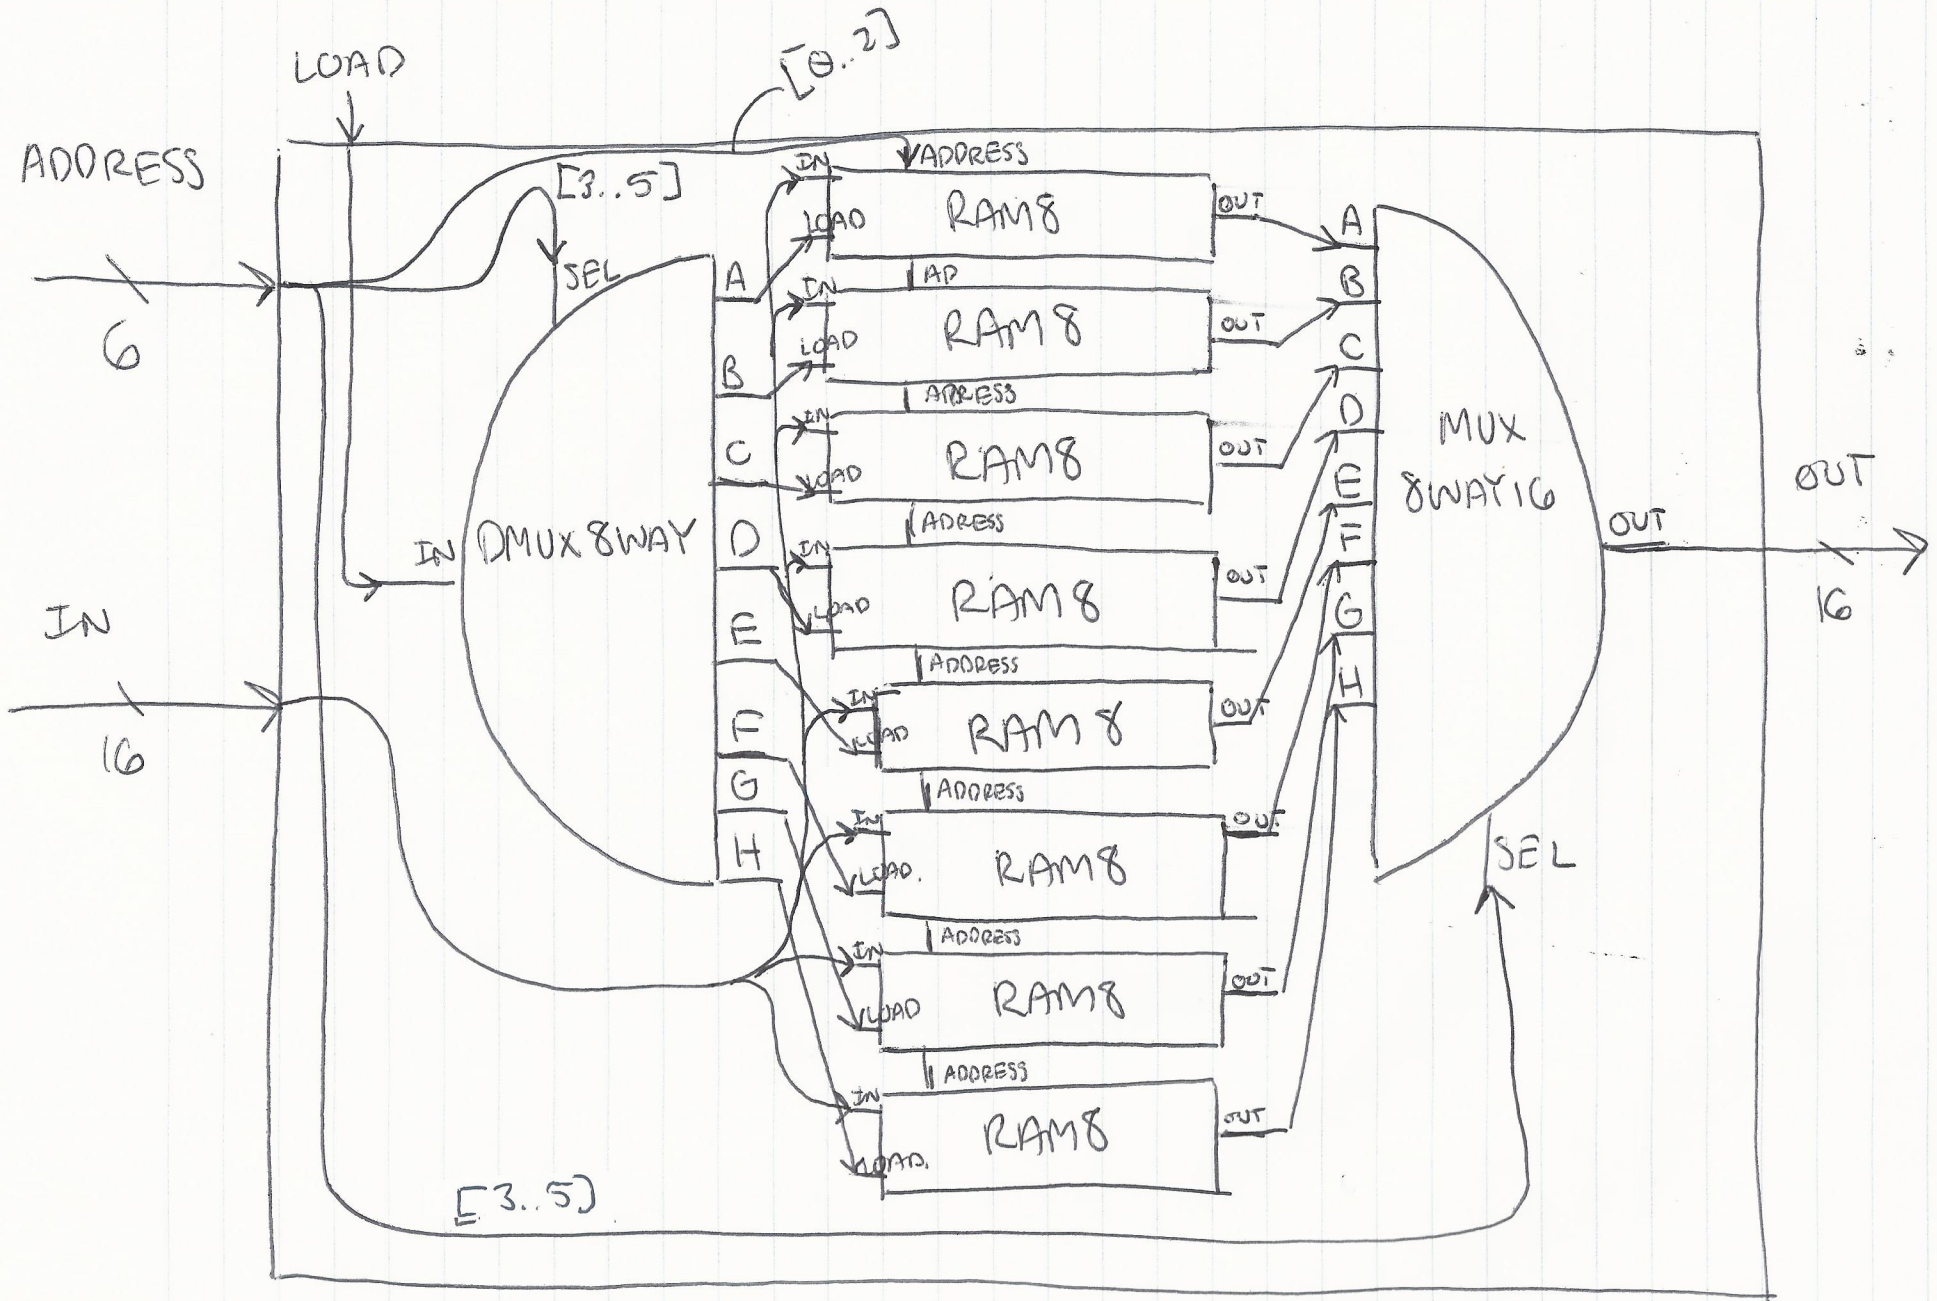 LOAD
[0..2]
ADDRESS
6
IN
16
[3..5]
SEL
IN
DMUX8WAY
A
B
C
D
E
F
G
H
IN
ADDRESS
LOAD
RAM8
OUT
IN
AD
LOAD
RAM8
OUT
IN
ADRESS
LOAD
RAM8
OUT
IN
ADRESS
LOAD
RAM8
OUT
IN
ADDRESS
LOAD
RAM8
OUT
IN
ADDRESS
LOAD.
RAM8
OUT
IN
ADDRESS
LOAD
RAM8
OUT
IN
ADDRESS
LOAD.
RAM8
OUT
A
B
C
D
E
F
G
H
MUX
8WAY16
OUT
SEL
OUT
16
[3..5]